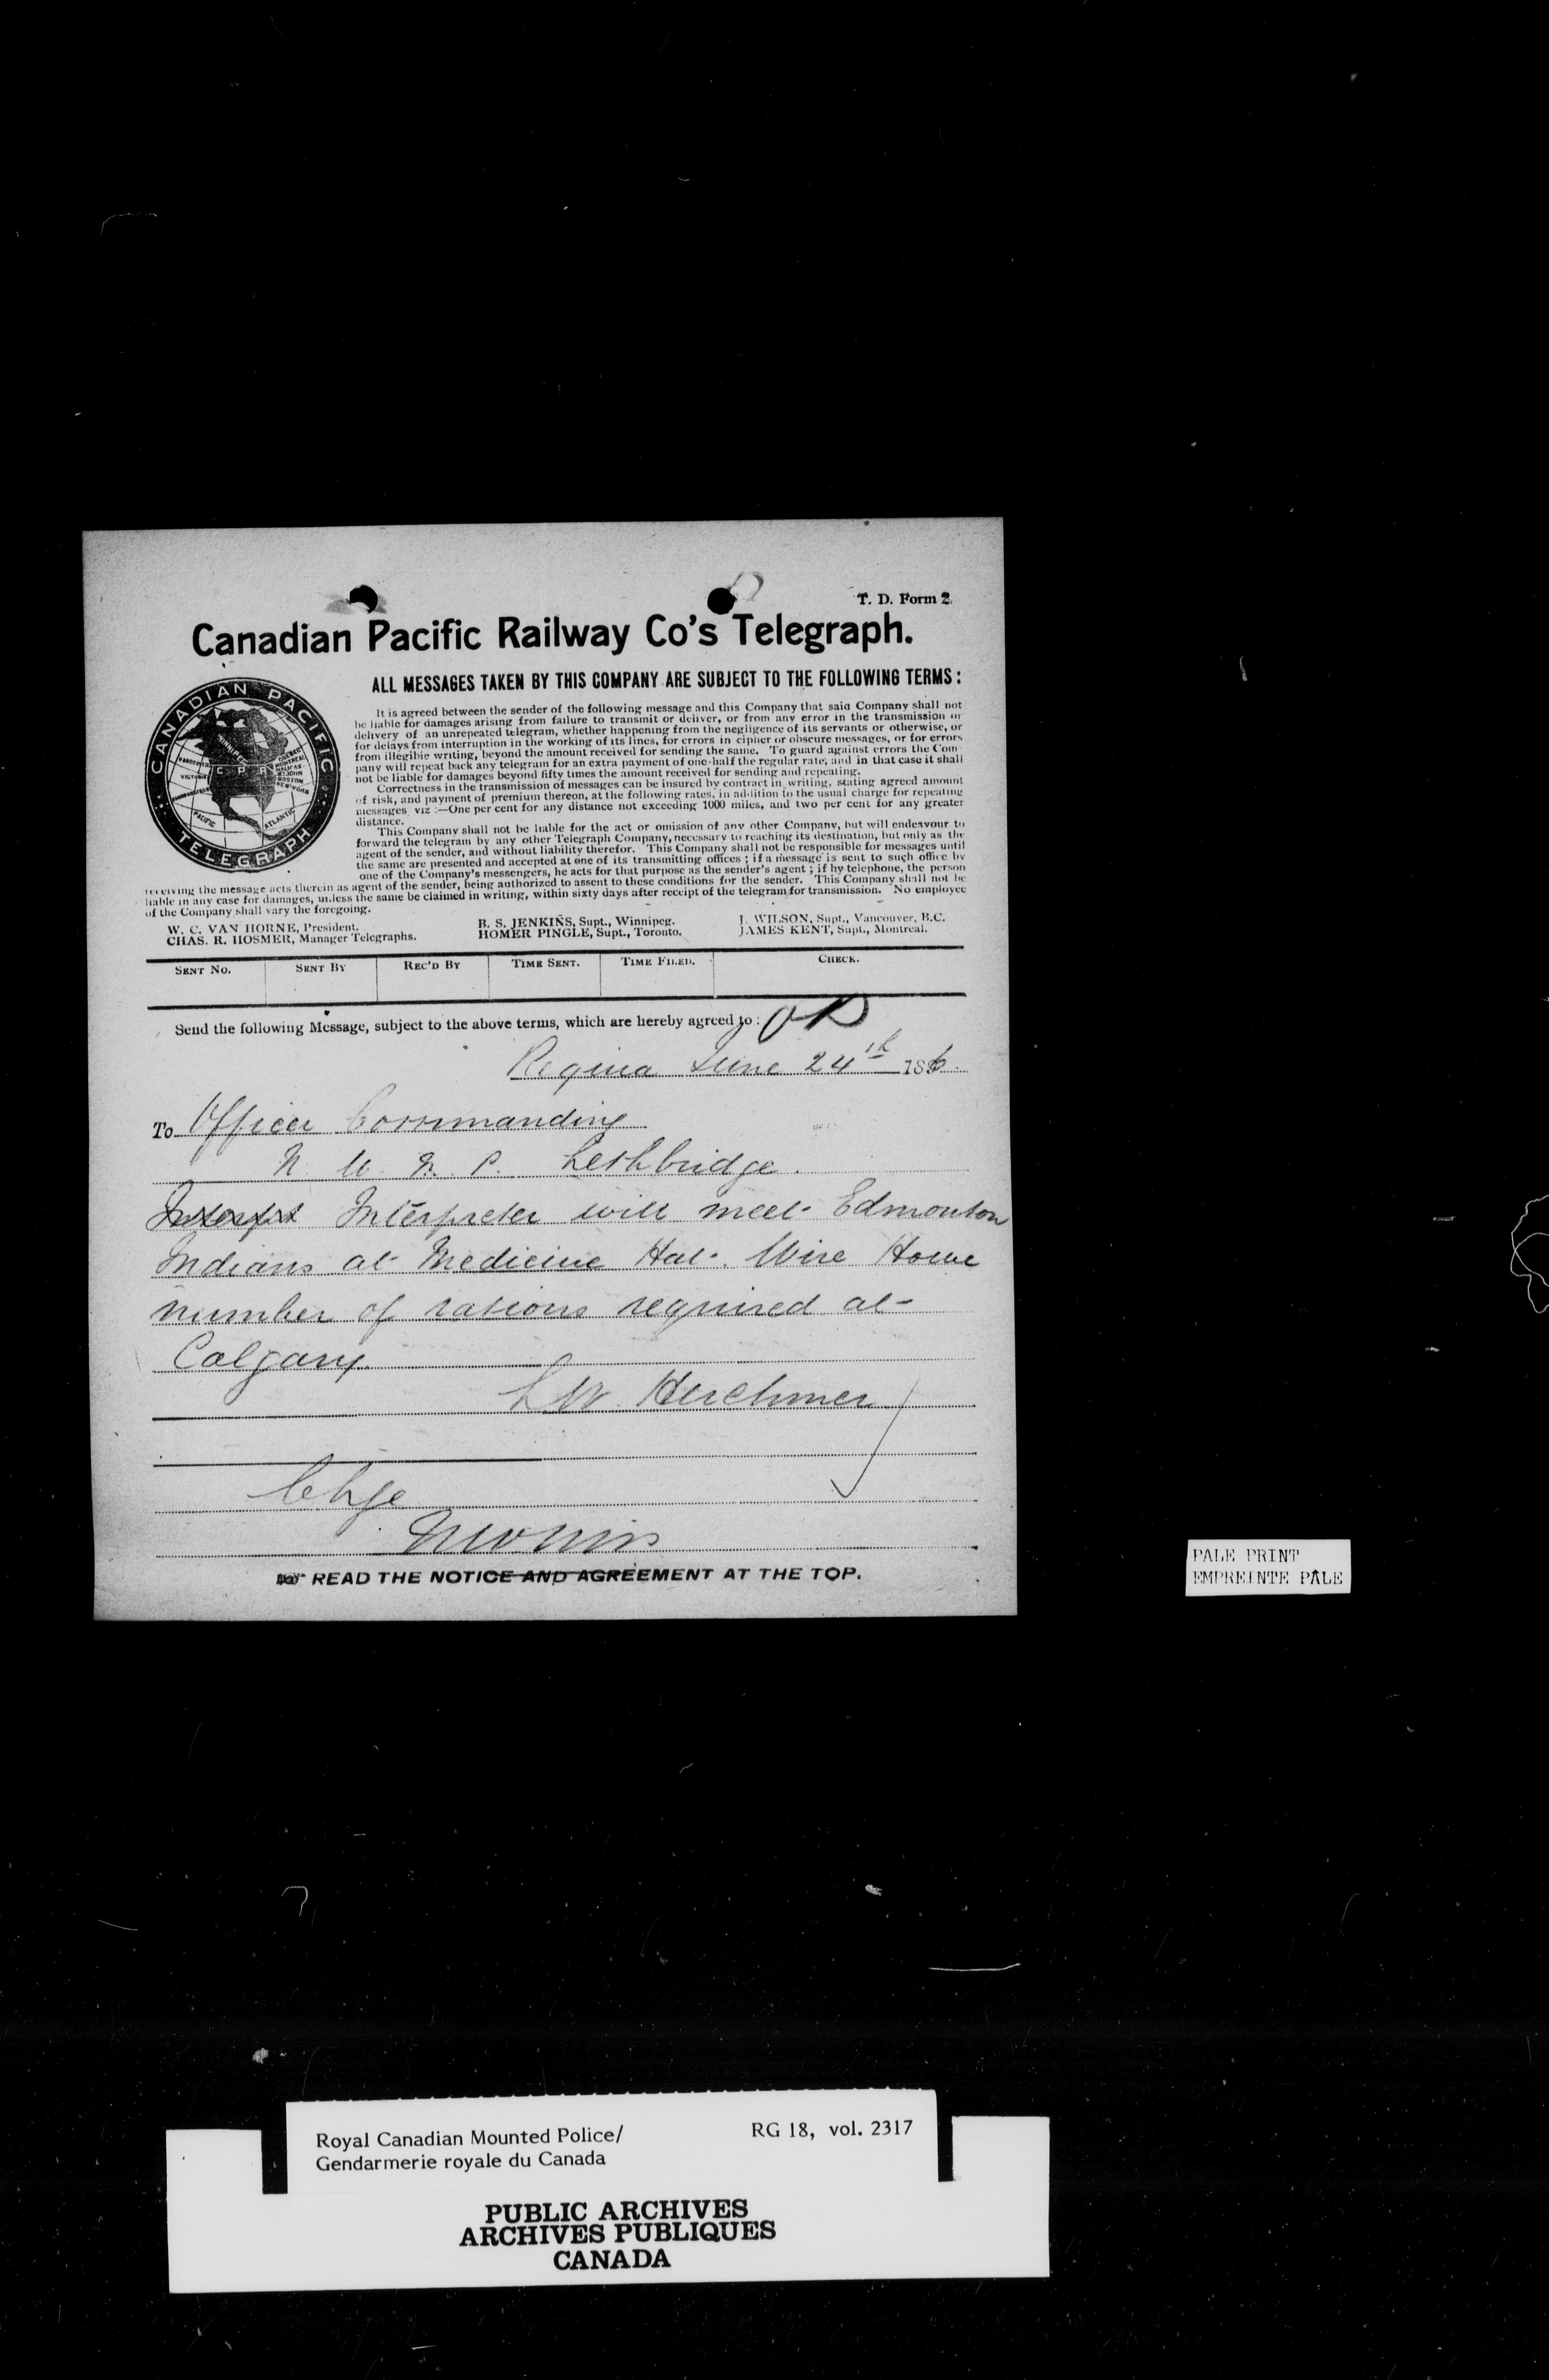 T. D. Form 2.
Canadian Pacific Railway Co's Telegraph.
ALL MESSAGES TAKEN BY THIS COMPANY ARE SUBJECT TO THE FOLLOWING TERMS:
CANADIAN PACIFIC
TELEGRAPH
C P R
PACIFIC
ATLANTIC
It is agreed between the sender of the following message and this Company that said Company shall not
be liable for damages arising from failure to transmit or deliver, or from any error in the transmission or
delivery of an unrepeated telegram, whether happening from the negligence of its servants or otherwise, or
for delays from interruption in the working of its lines, for errors in cipher or obscure messages, or for errors
from illegible writing, beyond the amount received for sending the same. To guard against errors the Com
pany will repeat back any telegram for an extra payment of one-half the regular rate, and in that case it shall
not be liable for damages beyond fifty times the amount received for sending and repeating.
Correctness in the transmission of messages can be insured by contract in writing, stating agreed amount
of risk, and payment of premium thereon, at the following rates, in addition to the usual charge for repeating
messages viz :—One per cent for any distance not exceeding 1000 miles, and two per cent for any greater
distance.
This Company shall not be liable for the act or omission of any other Company, but will endeavour to
forward the telegram by any other Telegraph Company, necessary to reaching its destination, but only as the
agent of the sender, and without liability therefor. This Company shall not be responsible for messages until
the same are presented and accepted at one of its transmitting offices ; if a message is sent to such office by
one of the Company's messengers, he acts for that purpose as the sender's agent ; if by telephone, the person
receiving the message acts therein as agent of the sender, being authorized to assent to these conditions for the sender. This Company shall not be
liable in any case for damages, unless the same be claimed in writing, within sixty days after receipt of the telegram for transmission. No employee
of the Company shall vary the foregoing.
W. C. VAN HORNE, President. B. S. JENKINS, Supt., Winnipeg. J. WILSON, Supt., Vancouver, B.C.
CHAS. R. HOSMER, Manager Telegraphs. HOMER PINGLE, Supt., Toronto. JAMES KENT, Supt., Montreal.
SENT NO. SENT BY REC'D BY TIME SENT. TIME FILED. CHECK.
Send the following Message, subject to the above terms, which are hereby agreed to:
Regina June 24th 
To Officer Commanding
N. W. M. P. Lethbridge.
Interpreter will meet Edmonton
Indians at Medicine Hat. Wire Howe
number of rations required at
Calgary.
L W. Herchmer
Chge
READ THE NOTICE AND AGREEMENT AT THE TOP.
PALE PRINT
EMPREINTE PALE
Royal Canadian Mounted Police/ RG 18, vol. 2317
Gendarmerie royale du Canada
PUBLIC ARCHIVES
ARCHIVES PUBLIQUES
CANADA